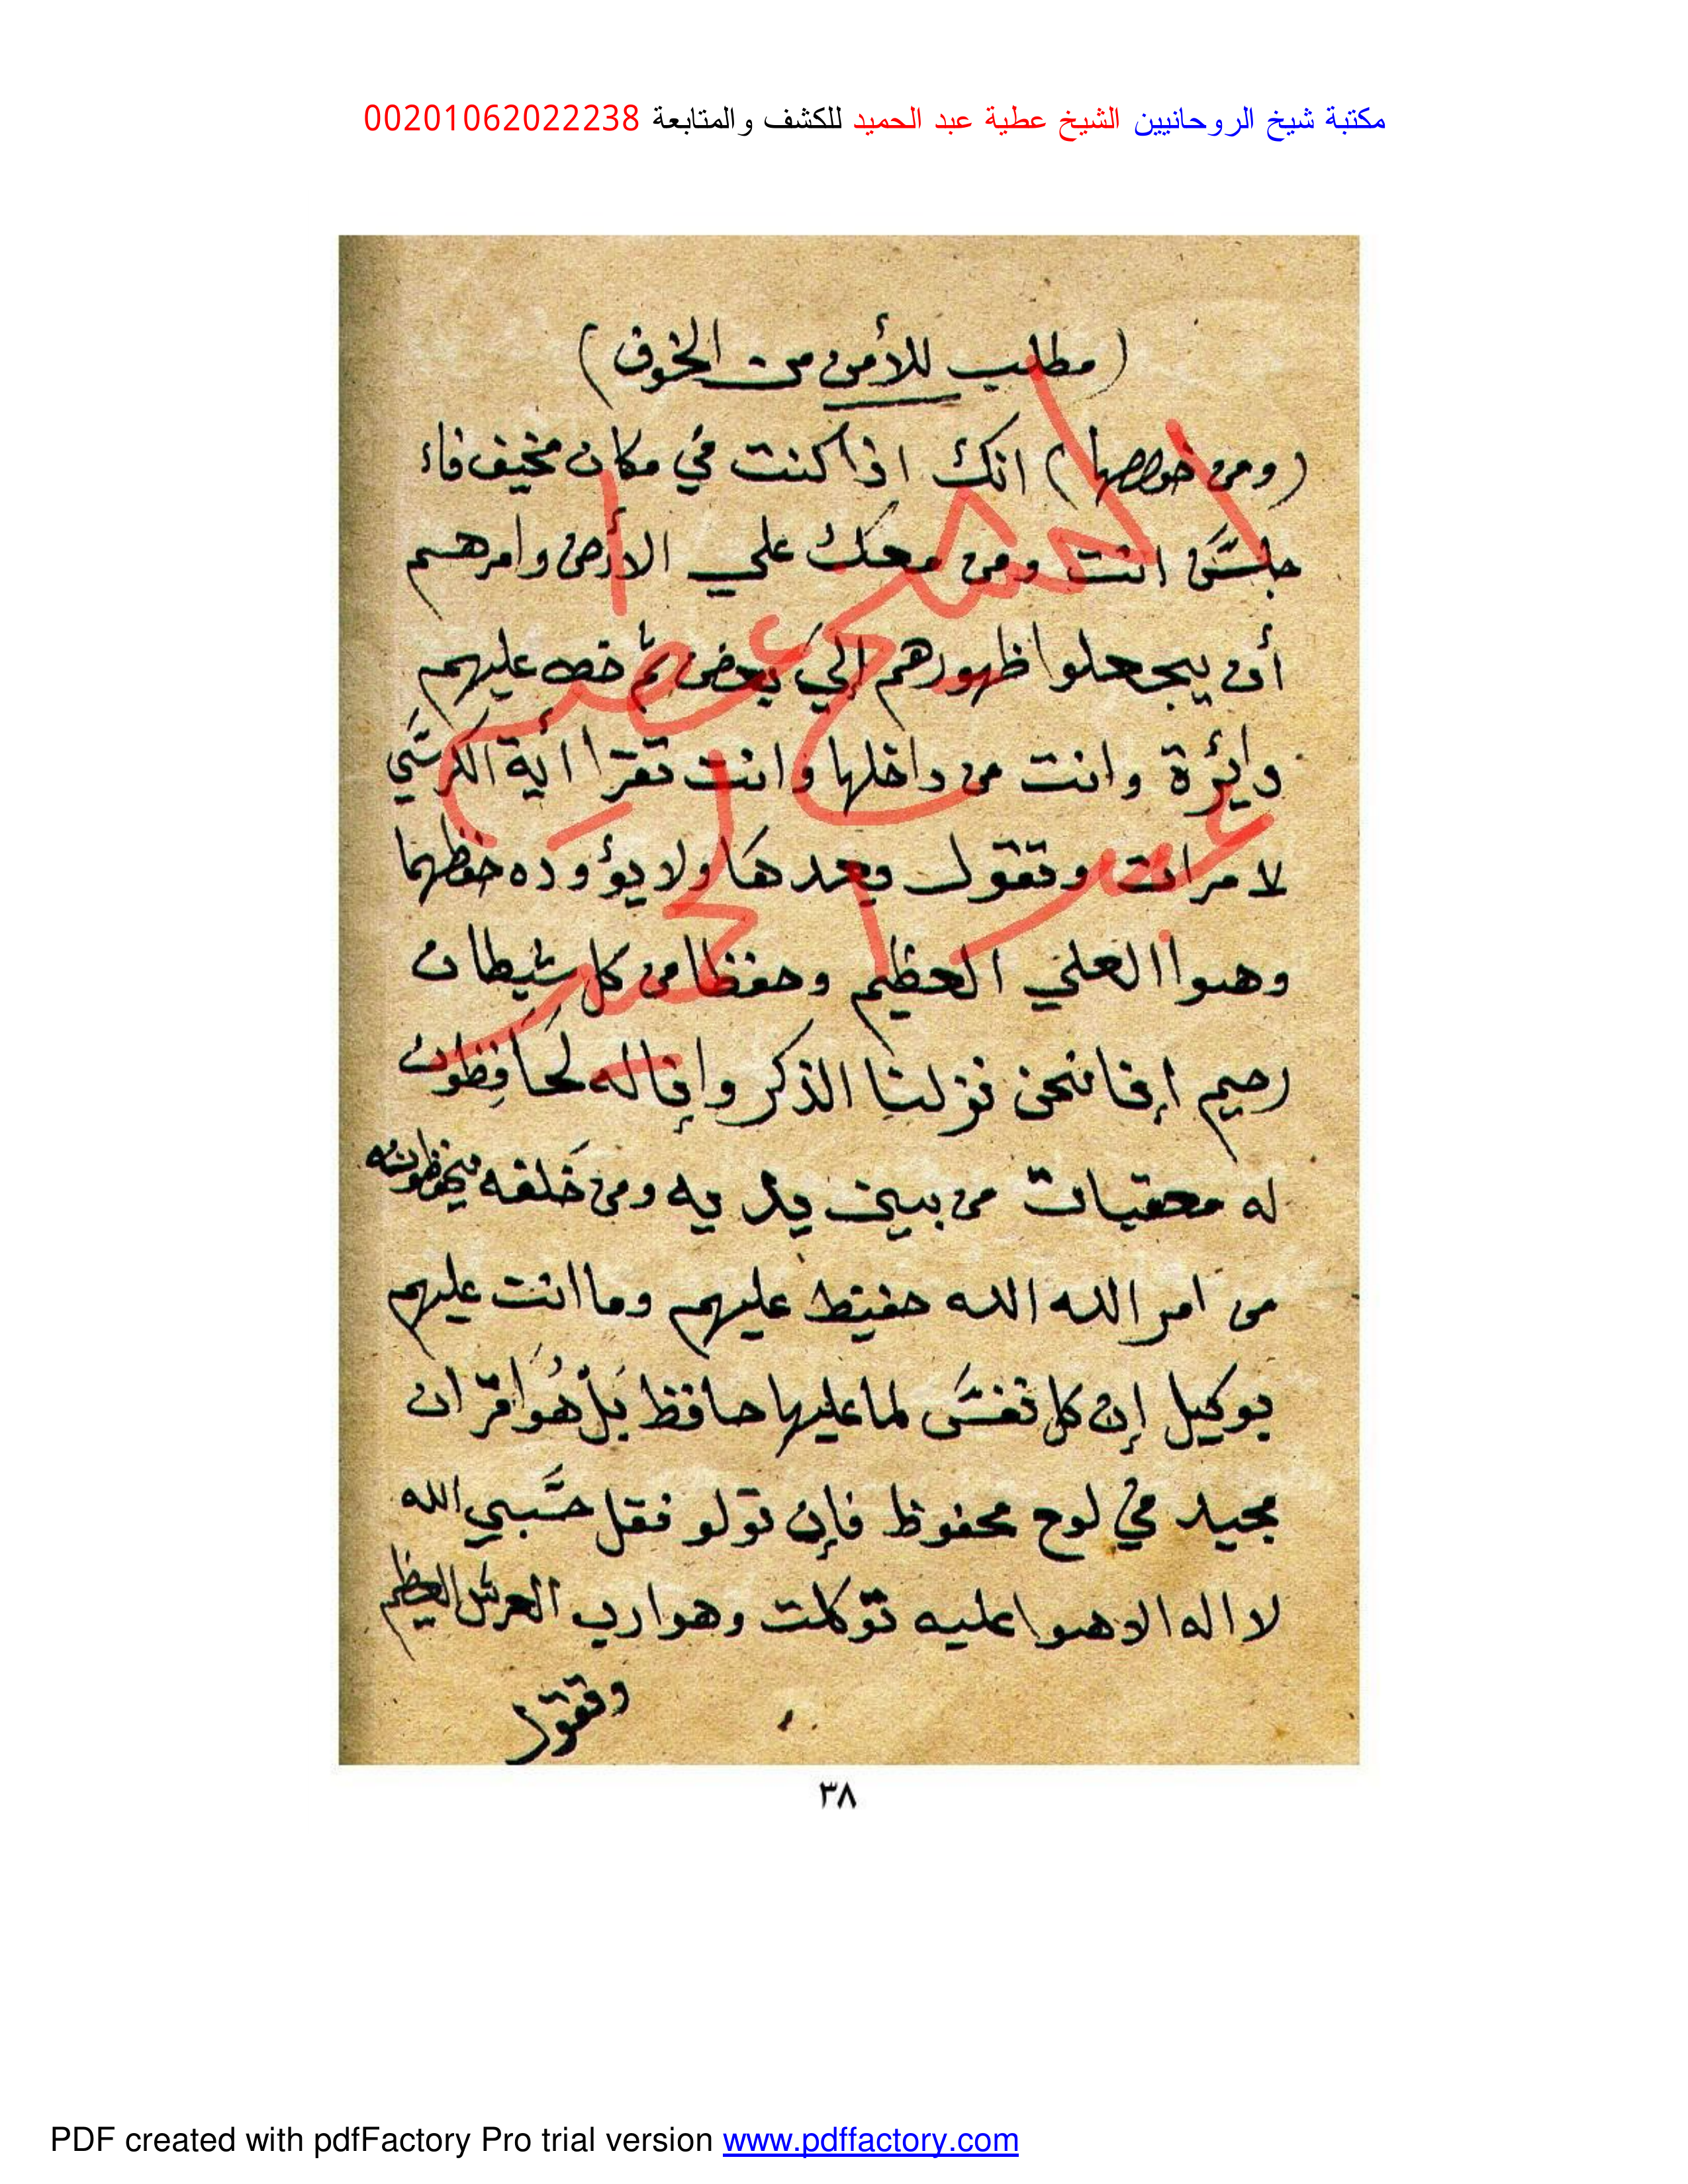 مكتبة شيخ الروحانيين الشيخ عطية عبد الحميد للكشف والمتابعة 00201062022238
(مطلب للأمن من الخوف)
(ومن خواصها) انك اذا كنت في مكان مخيف فاء
جلس انت ومن معك علي الأرض وامرهم
أن يجعلوا ظهورهم إلي بعض ثم خط عليهم
دايرة وانت من داخلها وانت تقرا أية الكرسي
٧ مرات وتقول بعدها ولا يؤوده حفظهما
وهوا العلي العظيم وحفظا من كل شيطان
رجيم إنا نحن نزلنا الذكر وإنا له لحافظون
له معقبات من بين يديه ومن خلفه يحفظونه
من امر الله الله حفيظ عليهم وما انت عليهم
بوكيل إن كل نفس لما عليها حافظ بل هوا قران
مجيد في لوح محفوظ فإن تولو فقل حسبي الله
لا اله الا هوا عليه توكلت وهوا رب العرش العظيم
وتقول
٣٨
الشيخ عطية
عبد الحميد
PDF created with pdfFactory Pro trial version www.pdffactory.com